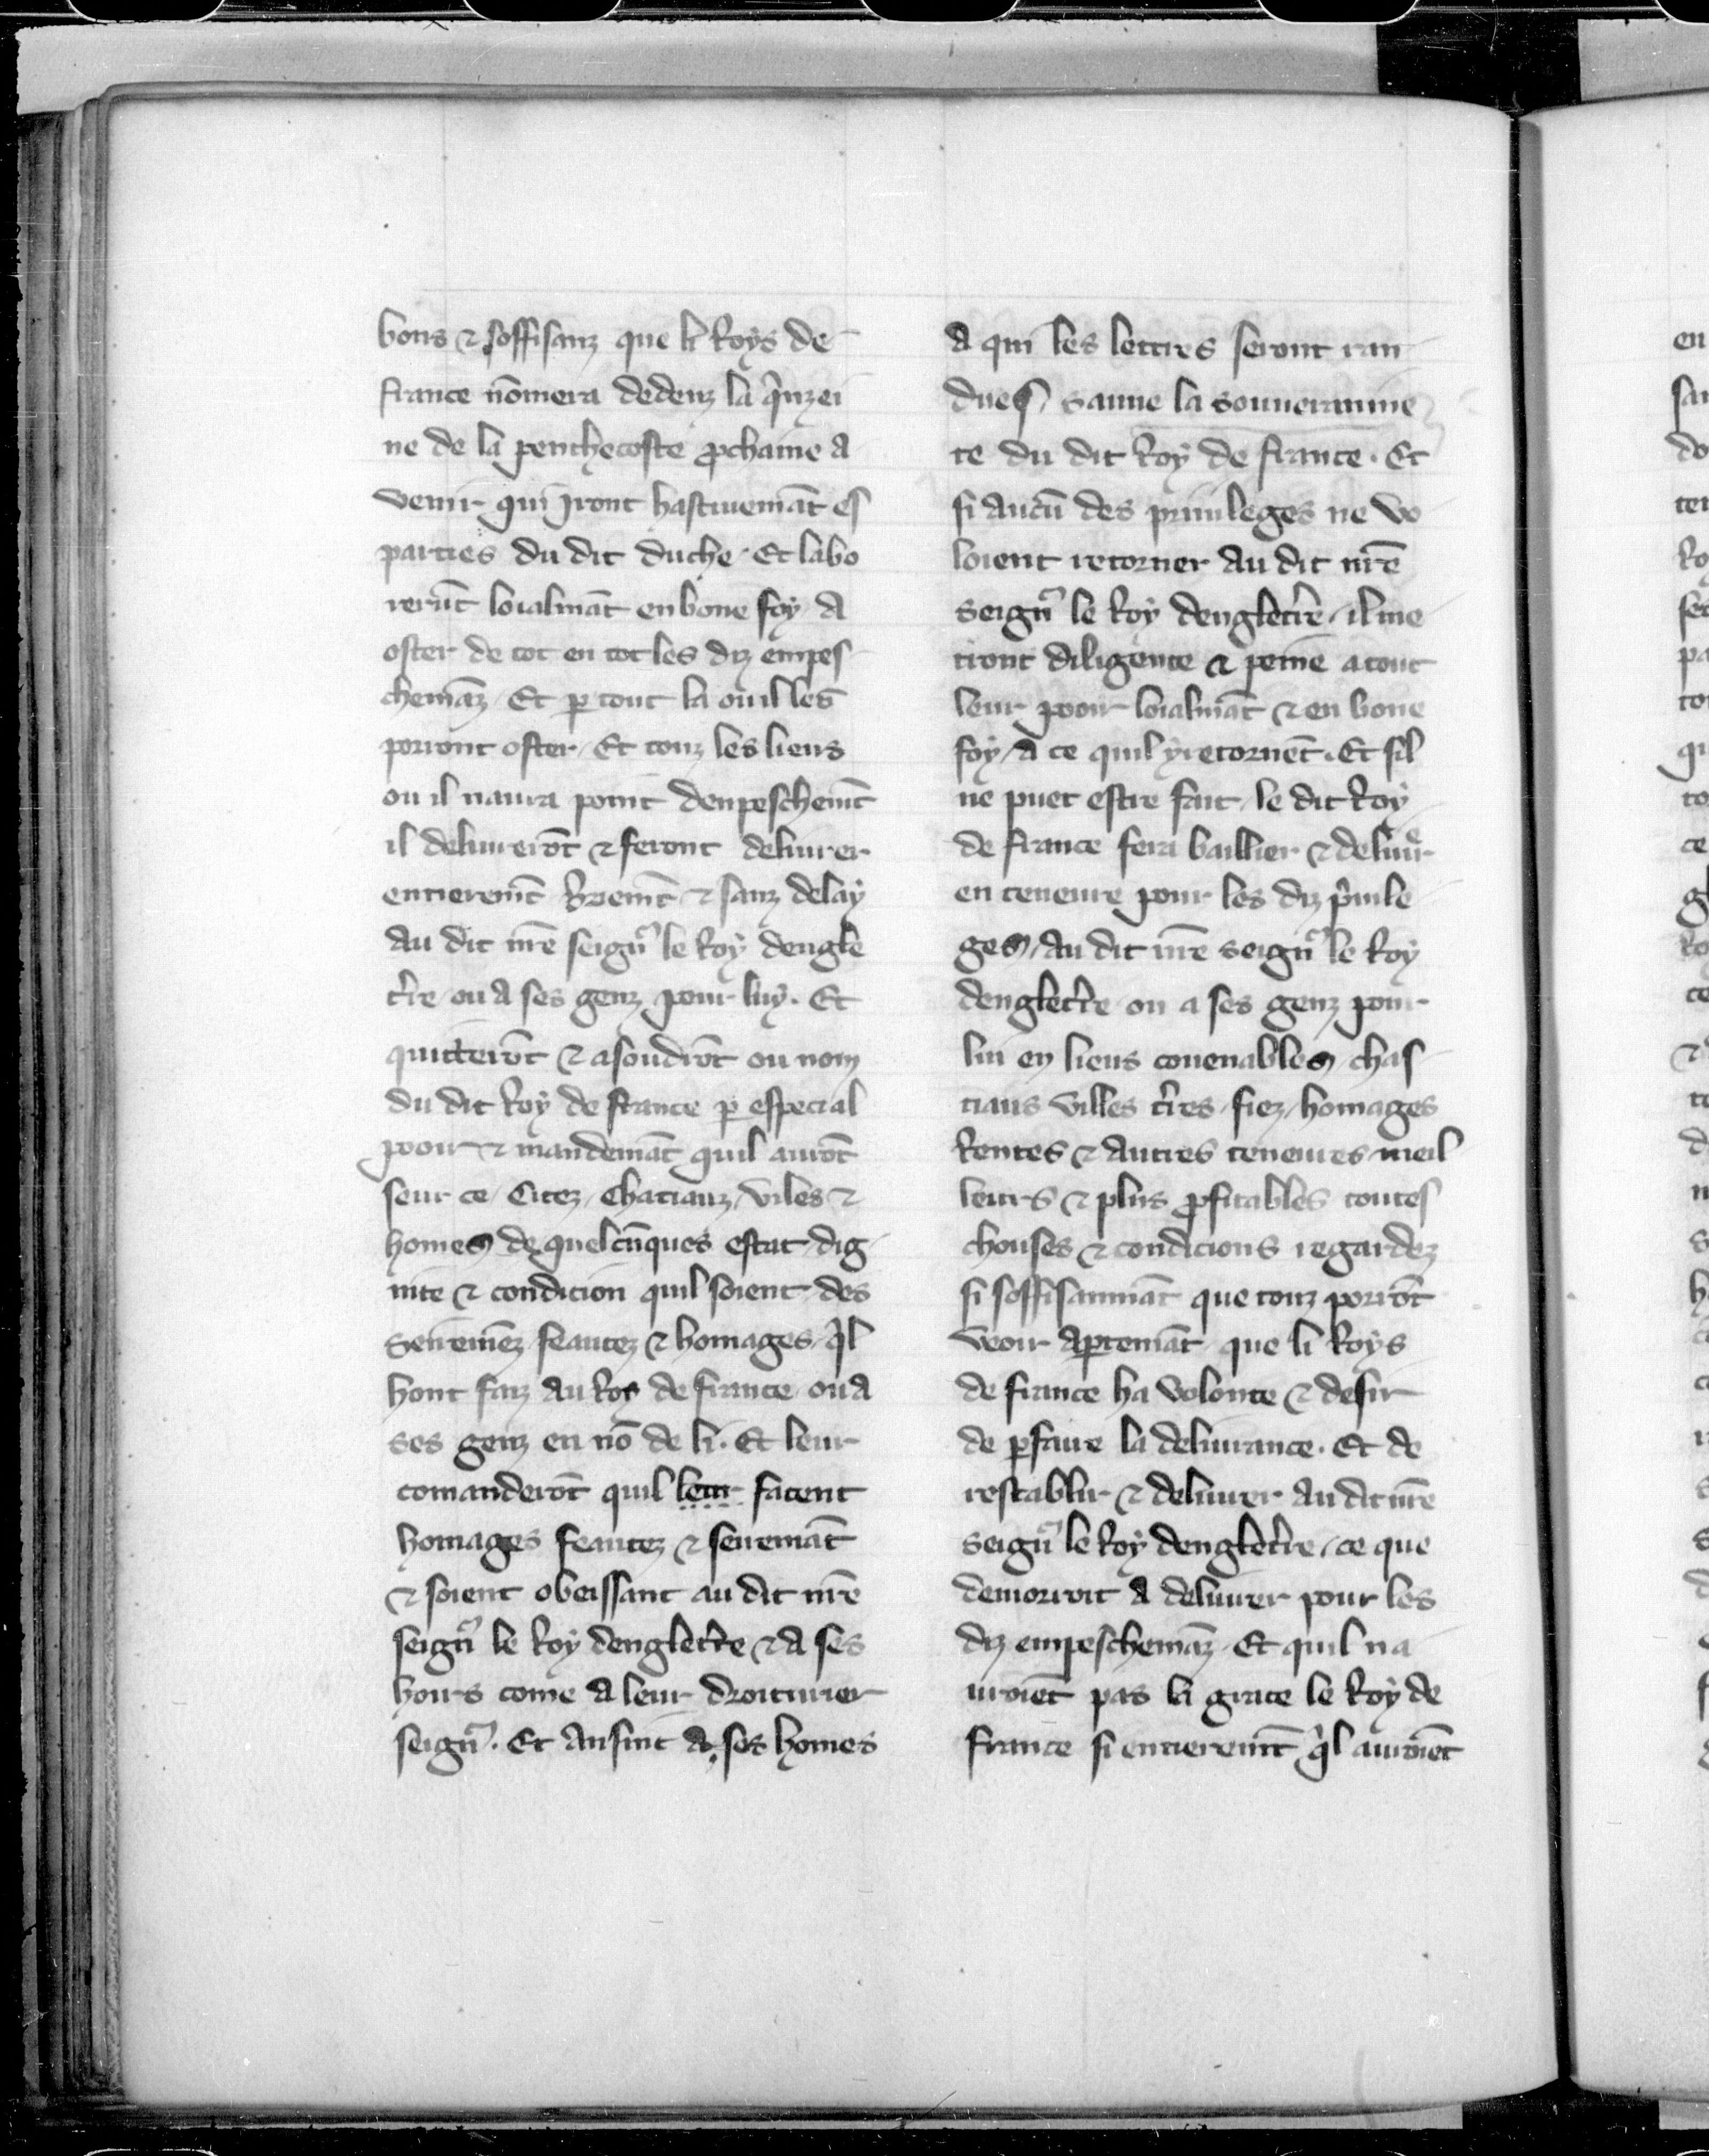 bons ⁊ soffisanz que li Roys de
france nōmera dedenz la q̃nzei
ne de la penthecoste ꝓchaine a
venir qui iront hastiuemāt es
parties du dit duche. Et labo
rerūt loialmāt en bone foy a
oster de tot en tot les diz empes
chemāz. Et ꝑ tout la ou il les
porront oster. Et touz les liens
ou il naura point denpeschemēt
il deliurerōt ⁊ feront deliurer
entieremēt briemēt ⁊ sanz delay
au dit nr̃e seignr̃ le Roy dengle
tr̃re ou a ses genz pour luy. Et
quitterōt ⁊ asoudrōt ou nom
du dit Roy de france ꝑ especial
pooir ⁊ mandemāt quil aurōt
seur ce, Citez, Chatiaux, viles ⁊
homes de quelcūques estat dig
nite ⁊ condicion quil soient des
seiremēz feautez ⁊ homages q̃l
hont faiz au Roy de france ou a
ses genz en nō de li. Et leur
comanderōt quil leur facent
homages feautez ⁊ seiremāt
⁊ soient obeissant au dit nr̃e
seignr̃ le Roy dengletr̃re ⁊ a ses
hoirs come a leur droiturier
seignr̃. Et ausint a ses homes
a qui les lettres seront ran
dues sauue la souuerainne
te du dit Roy de france. Et
si aucū des priuileges ne vo
loient retorner au dit nr̃e
seignr̃ le Roy dengletr̃re, il me
tront diligence ⁊ peine a tout
leur pooir loialmāt ⁊ en bone
foy, a ce quil y retornēt. Et sil
ne puet estre fait, le dit Roy
de france fera baillier ⁊ deliurer
en teneure pour les diz p̃uile
ges, au dit nr̃e seignr̃ le Roy
dengletr̃re ou a ses genz pour
lui en liens couenables, chas
tiaus villes tr̃res fiez, homages
Rentes ⁊ autres teneures meil
leurs ⁊ plus ꝓfitables toutes
chouses ⁊ condicions regardez
si soffisanmāt que touz porrōt
veoir aꝑtemāt que li Roys
de france ha volonte ⁊ desir
de ꝑfaire la deliurance. Et de
restablir ⁊ deliurer au dit nr̃e
seignr̃ le Roy dengletr̃re, ce que
demorroit a deliurer pour les
diz empeschemāz. Et quil na
uroiēt pas la grace le Roy de
france si entieremēt q̃l auroiēt